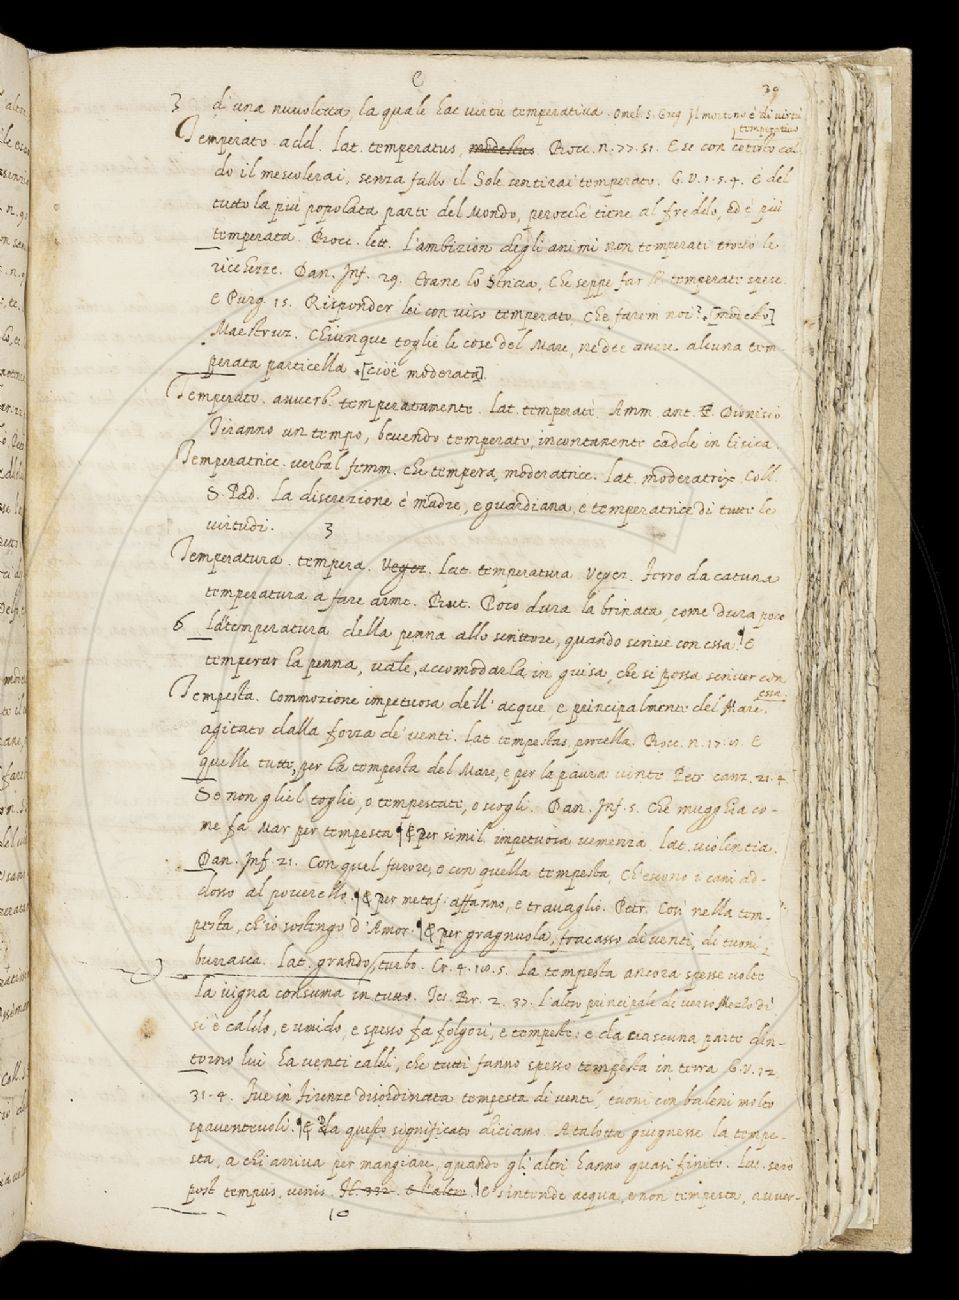 C
39
3 di una nuvoletta, la quale hae virtù temperativa. Omel. S. Greg. Il mortino è di virtù
temperativo
Temperato. add. Lat. temperatus, modestus. Bocc. n. 77. 51. E se con cotesto cal-
do il mescolerai, senza fallo il Sole sentirai temperato. G. V. 1. 5. 4. E del
tutto la più popolata parte del Mondo, perocchè tiene al freddo, ed è più
temperata. Bocc. lett. L'ambizion degli animi non temperati trovò le
ricchezze. Dan. Inf. 29. Trane lo Stricca, Che seppe far le temperate spese.
E Purg. 15. Risponder lei con viso temperato, Che farem noi? [modesto]
Maestruz. Chiunque toglie le cose del Mare, ne dee avere alcuna tem-
perata particella [cioè moderata].
Temperato. avverb. temperatamente. Lat. temperatè. Amm. ant. Dionisio
Tiranno un tempo, bevendo temperato, incontanente cadde in tisica.
Temperatrice. verbal femm. che tempera, moderatrice. Lat. moderatrix. Coll.
S. Pad. La discrezione è madre, e guardiana, e temperatrice di tutte le
virtudi. 3
Temperatura. tempera. Vegez. Lat. temperatura. Vegez. Ferro da catuna
temperatura a fare arme. But. Poco dura la brinata, come dura poco
6 la temperatura della penna allo scrittore, quando scrive con essa. ¶ E
temperar la penna, vale, accomodarla in guisa, che si possa scriver con
essa.
Tempesta. Commozione impetuosa dell'acque, e principalmente del Mare,
agitato dalla forza de' venti. Lat. tempestas, procella. Bocc. n. 17. E
quelle tutte, per la tempesta del Mare, e per la paura vinte. Petr. canz. 21. 4.
Se non gliel toglie, o tempestate, o scogli. Dan. Inf. 5. Che mugghia co-
me fa Mar per tempesta ¶ E per simil. impetuosa veemenza. Lat. violentia.
Dan. Inf. 21. Con quel furore, e con quella tempesta, Ch'escono i cani ad-
dosso al poverello. ¶ E per metaf. affanno, e travaglio. Petr. Così nella tem-
pesta, ch'io sostengo d'Amor. ¶ E per gragnuola, fracasso di venti, di tuoni,
burrasca. Lat. grando, turbo. Cr. 4. 10. 5. La tempesta ancora spesse volte
la vigna consuma in tutto. Tes. Br. 2. 37. L'altro principale di verso Mezzo dì
si è caldo, e umido, e spesso fa folgori, e tempeste: e da ciascuna parte din-
torno lui ha venti caldi, che tutti fanno spesso tempesta in terra. G. V. 12.
31. 4. Fue in Firenze disordinata tempesta di venti, tuoni con baleni molto
spaventevoli. ¶ E da questo significato diciamo. A talotta giugnesse la tempe-
sta, a chi arriva per mangiare, quando gli altri hanno quasi finito. Lat. sero
post tempus venis. ¶ E s'intende acqua, e non tempesta, avver-
10